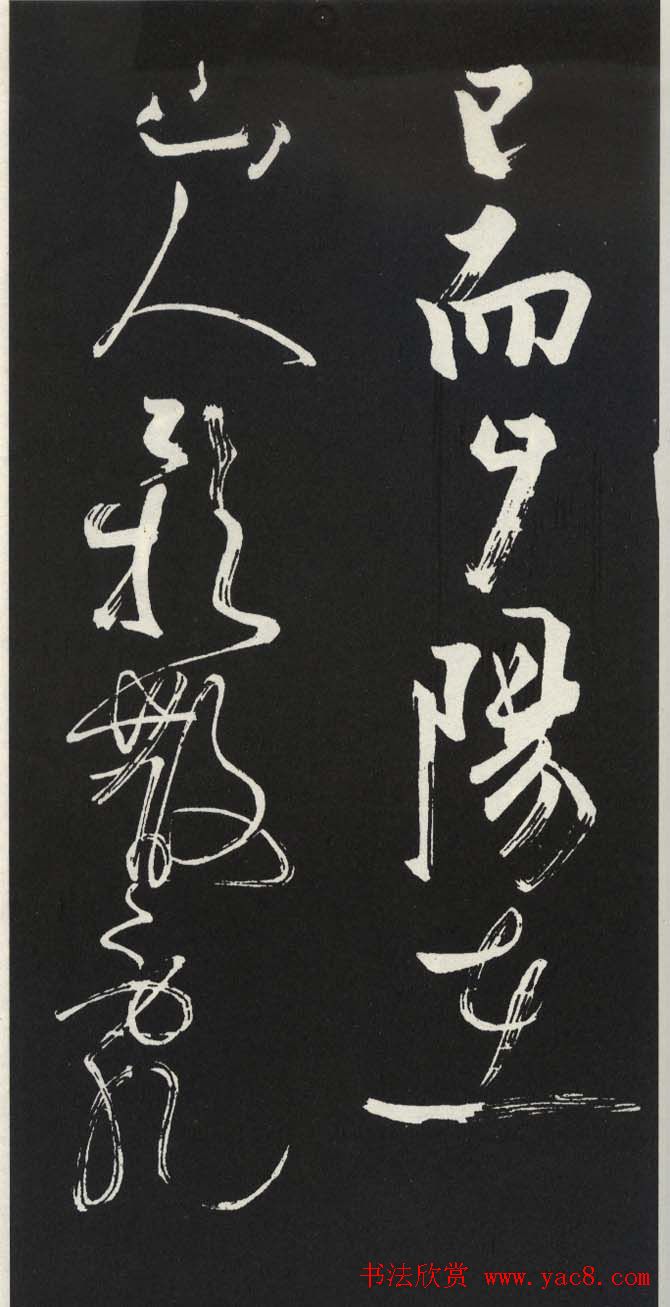 已而夕陽在
山人影散亂
书法欣赏 www.yac8.com